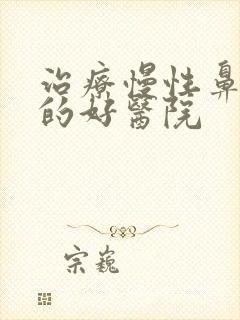 治療慢性鼻
的好醫院
宗巍